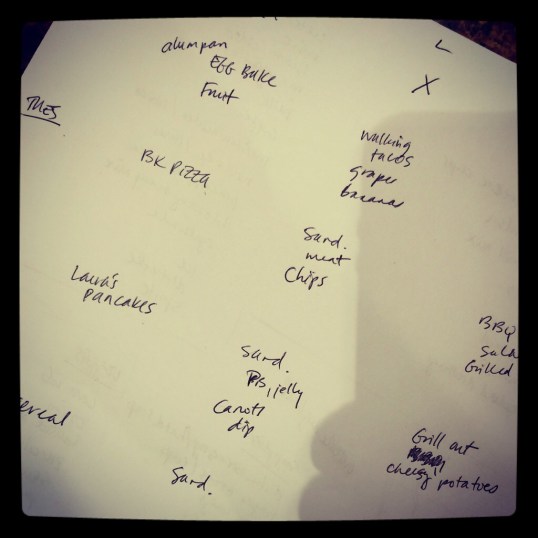 alumpan
EGG BAKE
Fruit
L
X
TUES
BK PIZZA
walking
tacos
grapes
bananas
Sand.
meat
Chips
Laura's
pancakes
BBQ
Sala
Grilled
Sand.
PB, jelly
Carrots
dip
ereal
Grill out
cheesy potatoes
Sand.